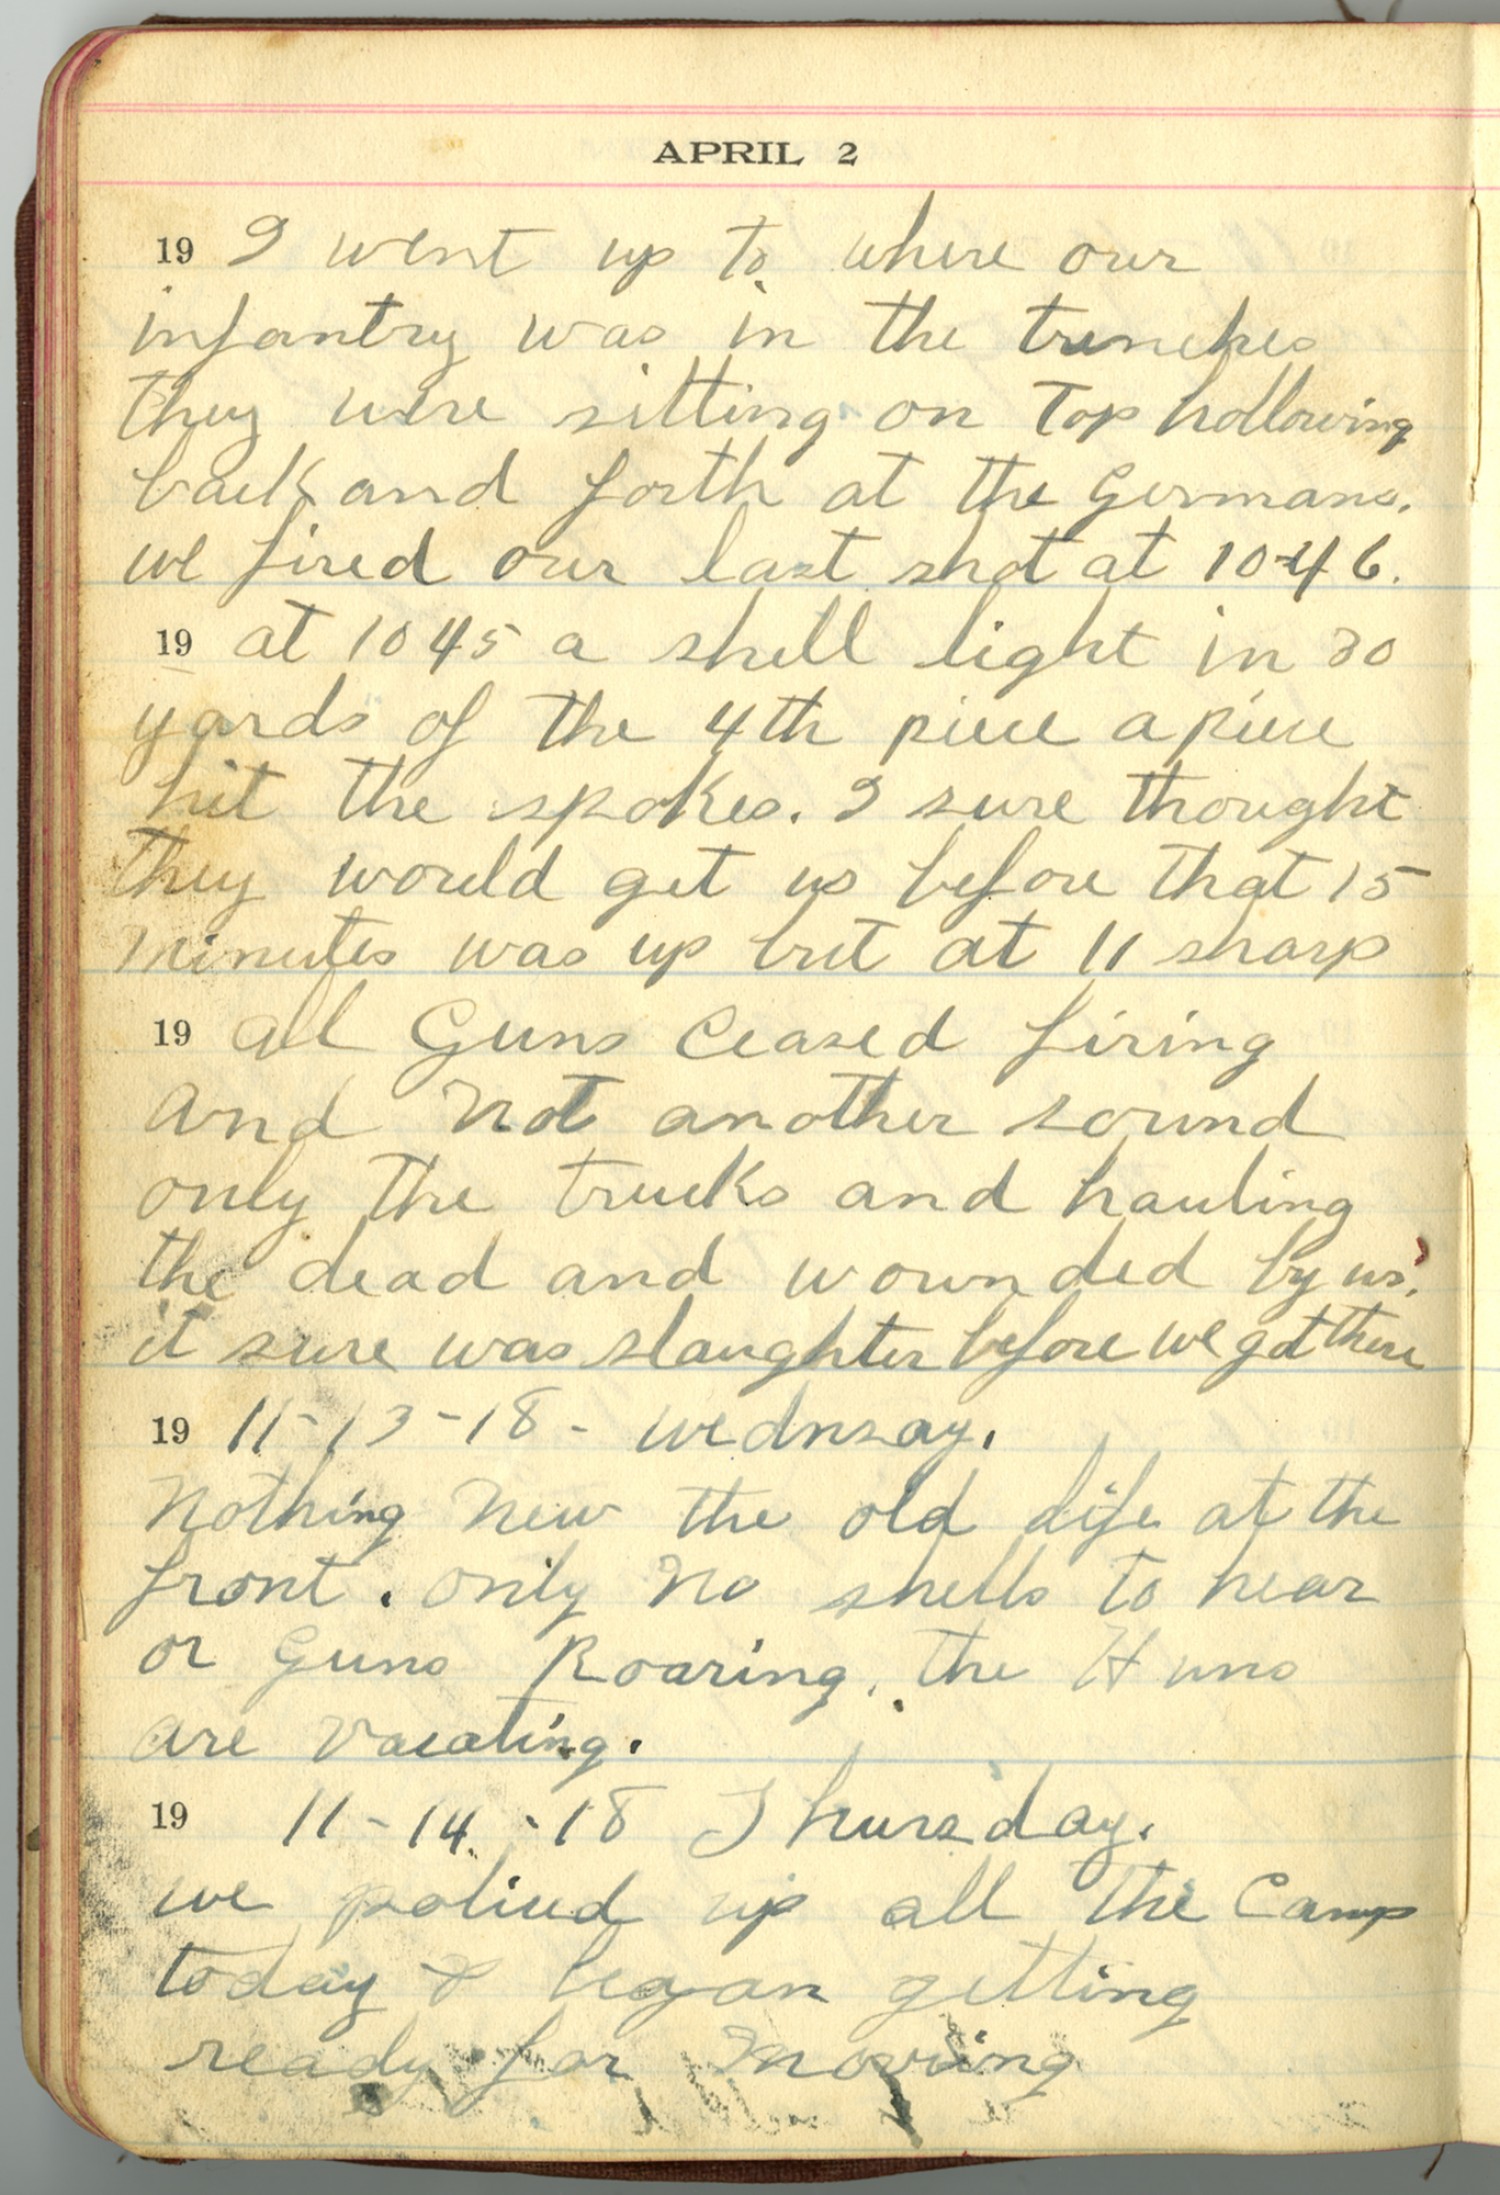 APRIL 2
19 I went up to where our
infantry was in the trenches
they were sitting on Top hollowing
back and forth at the Germans.
we fired our last shot at 10-46.
19 at 10 45 a shell light in 30
yards of the 4th piece a piece
hit the spokes. I sure thought
they would get us before that 15
minutes was up but at 11 sharp
19 all Guns Ceased firing
and Not another sound
only the trucks and hauling
the dead and wounded by us.
it sure was slaughter before we got there
19 11-13-18- wednsay.
Nothing New the old life at the
front. only No shells to hear
or Guns Roaring. the Huns
are vacating.
19 11-14-18 Thursday.
we poliued up all the Camp
today & began getting
ready for moving